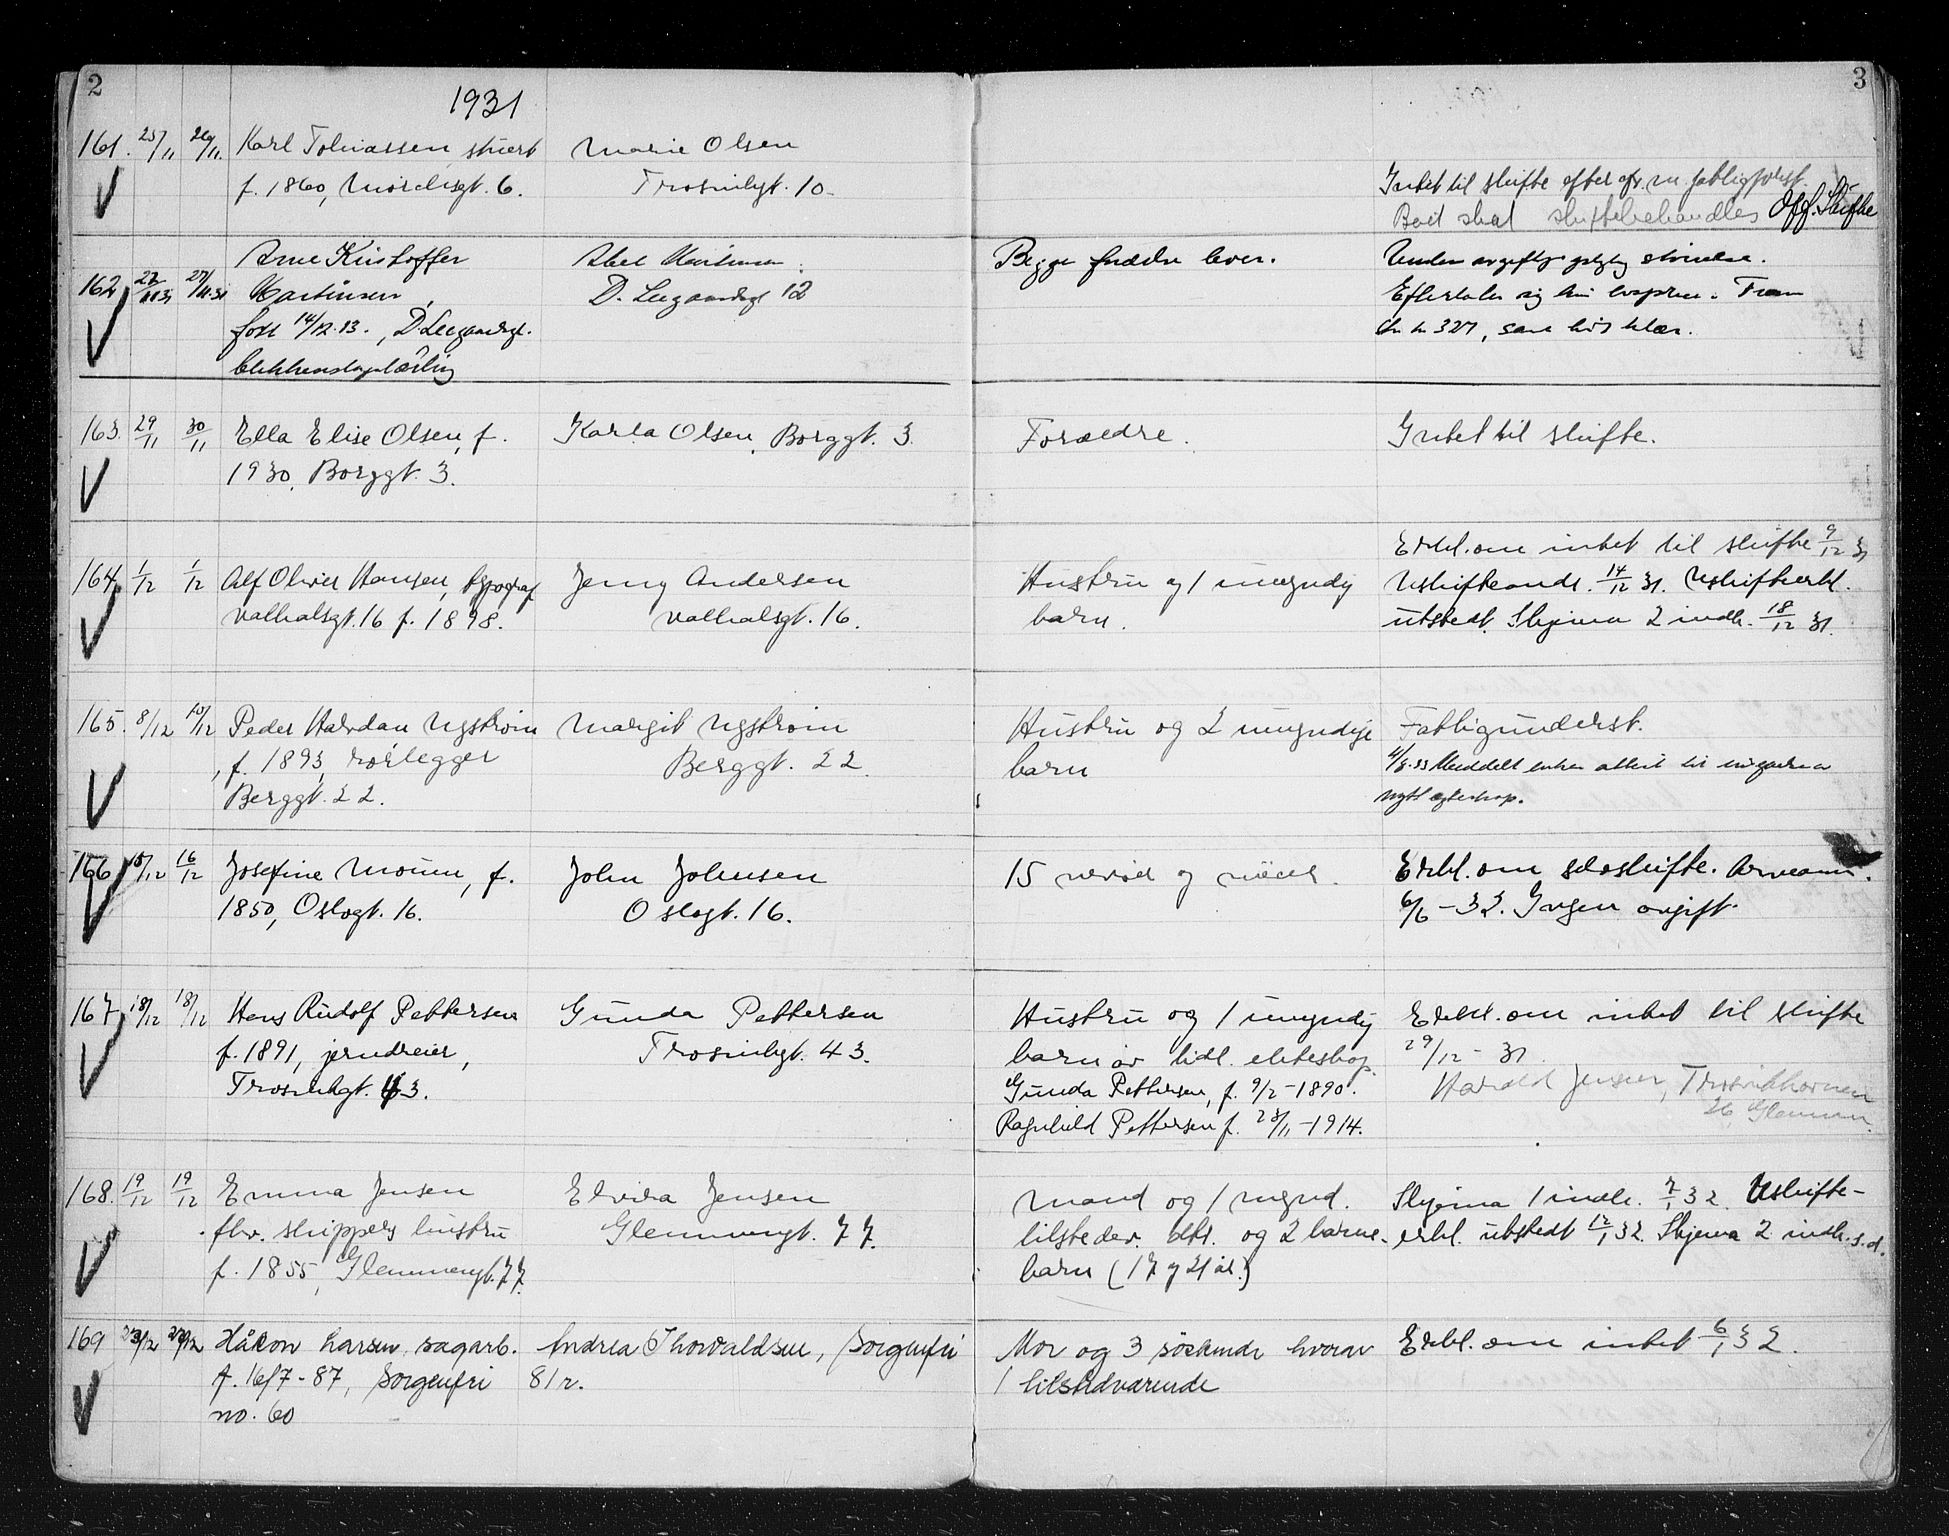 2
3
1931
161. 25/11 26/11. Karl Tobiassen, stuert
f. 1860, 6.
Marie Olsen
Trosvikgt. 10
Intet til skifte efter
Boet skal skiftebehandles Off. Skifte
162 27/11 31 27/11.31 Arne Kristoffer
Martinsen,
født 14/12.13., D. Leegaardsgt.
blikkenslagerlærling
Abel Martinsen
D. Leegaardsgt 12
Begge forældre lever.
Under avgiftspligtig størrelse.
Efterlater sig
327, samt klær.
163. 29/11 30/11 Ella Elise Olsen, f.
1930, Borggt. 3.
Karla Olsen, Borggt. 3.
Forældre.
Intet til skifte.
164 1/12 1/12 Alf Oliver Hansen, typograf
Valhalsgt. 16 f. 1898.
Jenny Andersen
Valhalsgt. 16.
Hustru og 1 umyndig
barn.
Erkl. om intet til skifte 9/12 31
Uskifteand. 14/12 31. Uskifteerkl.
utstedt. Skjema 2 indk. 18/12 31.
165. 8/12 10/12 Peder Halvdan Nystrøm
, f. 1893, rørlegger
Berggt. 22.
Margit Nystrøm
Berggt. 22.
Hustru og 2 umyndige
barn
Fattigunderst.
4/8.33 Meddelt enken attest til
nytt egteskap.
166 15/12 16/12 Josefine Moum, f.
1850, Oslogt. 16.
John Johnsen
Oslogt. 16.
15 nevøer og niecer.
Erkl. om selvskifte. Arveanm.
6/6 - 32. Ingen avgift.
167 18/12 18/12 Hans Rudolf Pettersen
f. 1891, jerndreier,
Trosvikgt. 43.
Gunda Pettersen
Trosvikgt. 43.
Hustru og 1 umyndig
barn av tidl. ekteskap.
Gunda Pettersen, f. 9/2 - 1890.
Ragnhild Pettersen f. 23/11 - 1914.
Erkl. om intet til skifte
29/12 - 31.
Harald Jensen, Trosvikhavnen
26 Glemmen.
168. 19/12 19/12 Emma Jensen
fhv. skippers hustru
f. 1855, Glemmengt. 77.
Elvira Jensen
Glemmengt. 77.
Mand og 1 mynd.
tilstedev. dtr. og 2 barne-
barn (17 og 21 år.)
Skjema 1 indk. 7/1 32. Uskifte-
erkl. utstedt 12/1 32. Skjema 2 indk. s.d.
169 23/12 23/12 Håkon Larsen, sagarb.
f. 16/7 - 87, Sorgenfri
no. 60
Andrea Thorvaldsen, Sorgenfri
81 r.
Mor og 3 søskende hvorav
1 tilstedværende
Erkl. om intet 6/1 32.